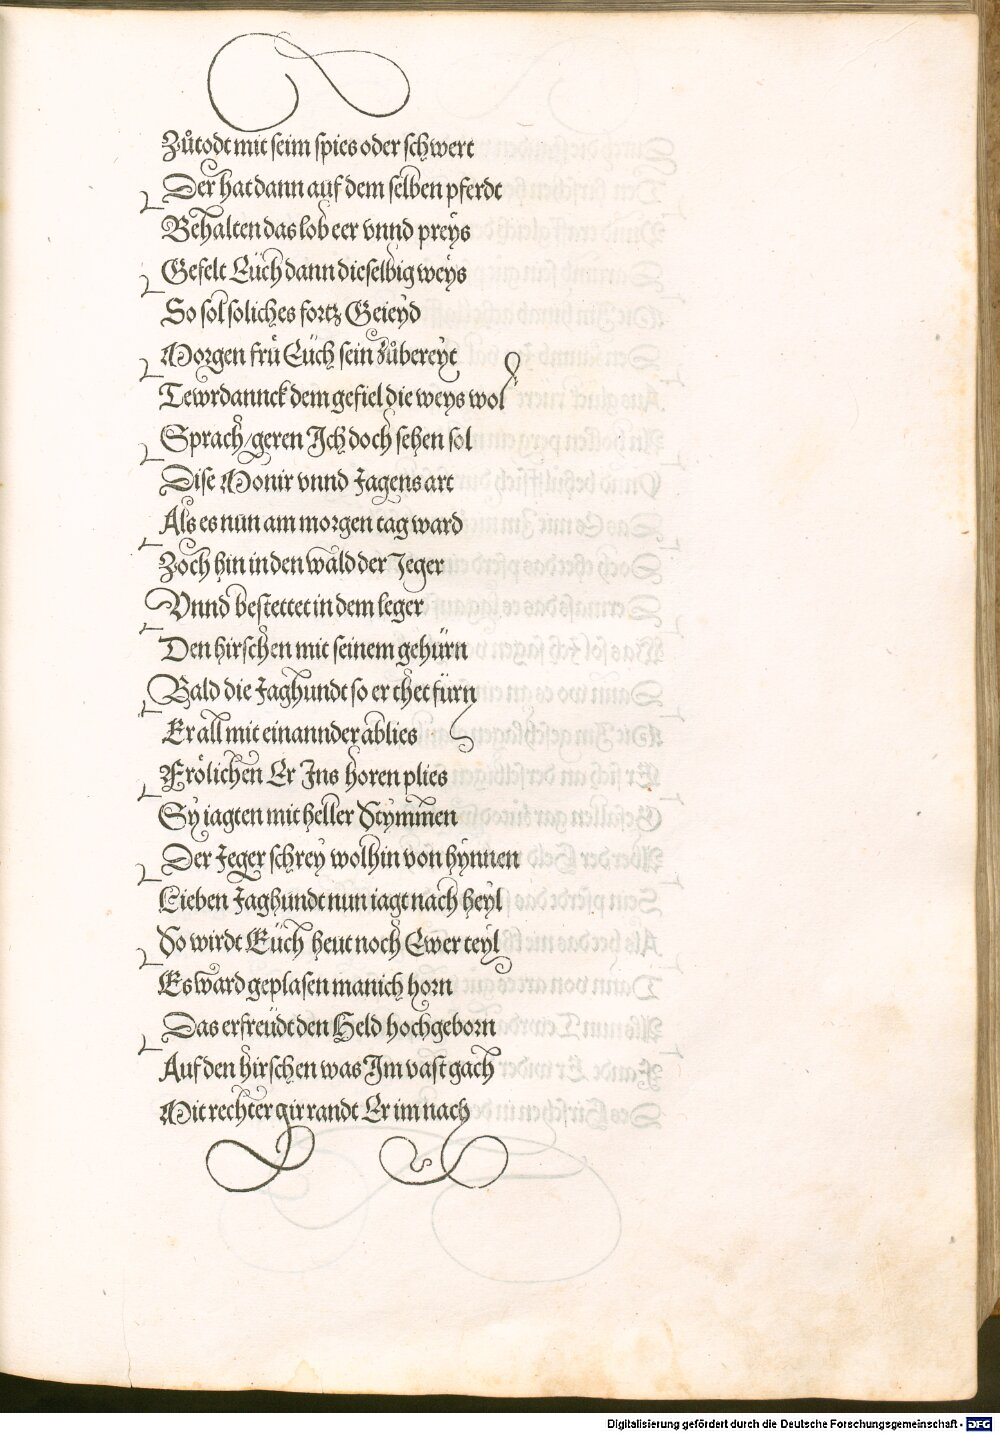 Zůtodt mit seim spies oder schwert
Der hat dann auf dem selben pferdt
Behalten das lob eer vnnd preÿs
Gefelt Eüch dann dieselbig weÿs
So sol soliches fortz Geieÿd
Morgen frü Eüch sein zůbereÿt
Tewrdannck dem gefiel die weÿs wol
Sprach/geren Ich doch sehen sol
Dise Monir vnnd Jagens art
Als es nun am morgen tag ward
Zoch hin in den wald der Jeger
Vnnd bestettet in dem leger
Den hirschen mit seinem gehürn
Bald die Jaghundt so er thet fürn
Er all mit einannder ablies
Frölichen Er Ins horen plies
Sÿ iagten mit heller Stÿmmen
Der Jeger schreÿ wolhin von hÿnnen
Lieben Jaghundt nun iagt nach heÿl
So wirdt Eüch heut noch Ewer teÿl
Es ward geplasen manich horn
Das erfreüdt den Held hochgeborn
Auf den hirschen was Im vast gach
Mit rechter gir randt Er im nach
Digitalisierung gefördert durch die Deutsche Forschungsgemeinschaft - DFG